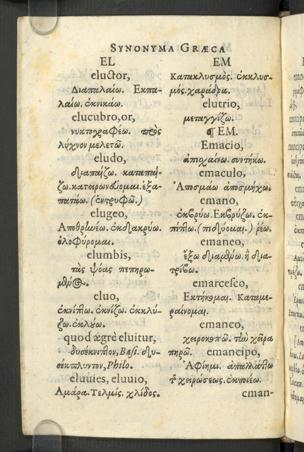 SYNONYMA GRÆCA
EL
eluctor,
Διαπαλαίω. Εκπα-
λαίω. ἐκνικάω.
elucubro, or,
νυκτογραφέω. πρὸς
λύχνον μελετῶ.
eludo,
διαπαίζω. καταπαί-
ζω. κατειρωνεύομαι. ἐξα-
πατάω. (ἐντρυφῶ.)
elugeo,
Αποθρίωέω. ἐκδακρύω.
ὀλοφύρομαι.
elumbis,
τὰς ψόας πεπηρω-
μένος.
eluo,
ἐκνίπτω. ἐκνίζω. ἐκκλύ-
ζω. ἐκλούω.
quod ægrè eluitur,
δυσέκνιπτον, Bas. δυ-
σέκπλυντον, Philo.
eluuies, eluuio,
Αμάρα. Τελμὶς. χλίδος.
EM
Κατακλυσμὸς. ἐκκλυσ-
μὸς. χαράδρα.
elutrio,
μεταγγίζω.
¶ EM.
Emacio,
ἀποχαίνω. συντήκω.
emaculo,
Ἀποσμάω ἀποσμήχω.
emano,
ἐκβρύω. Εκβρύζω. ἐκ-
πίπτω. (πιδύομαι.) ῥέω.
emaneo,
ἔξω διαμένω. ἢ δια-
τρίβω.
emarcesco,
Εκτήκομαι. Καταμα-
ραίνομαι.
emanco,
χειροκοπῶ. τὼ χεῖρα
πηρῶ.
emancipo,
Ἀφίημι. ἀπαλλάττω
τ χειρώσεως. ἐκποιέω.
eman-